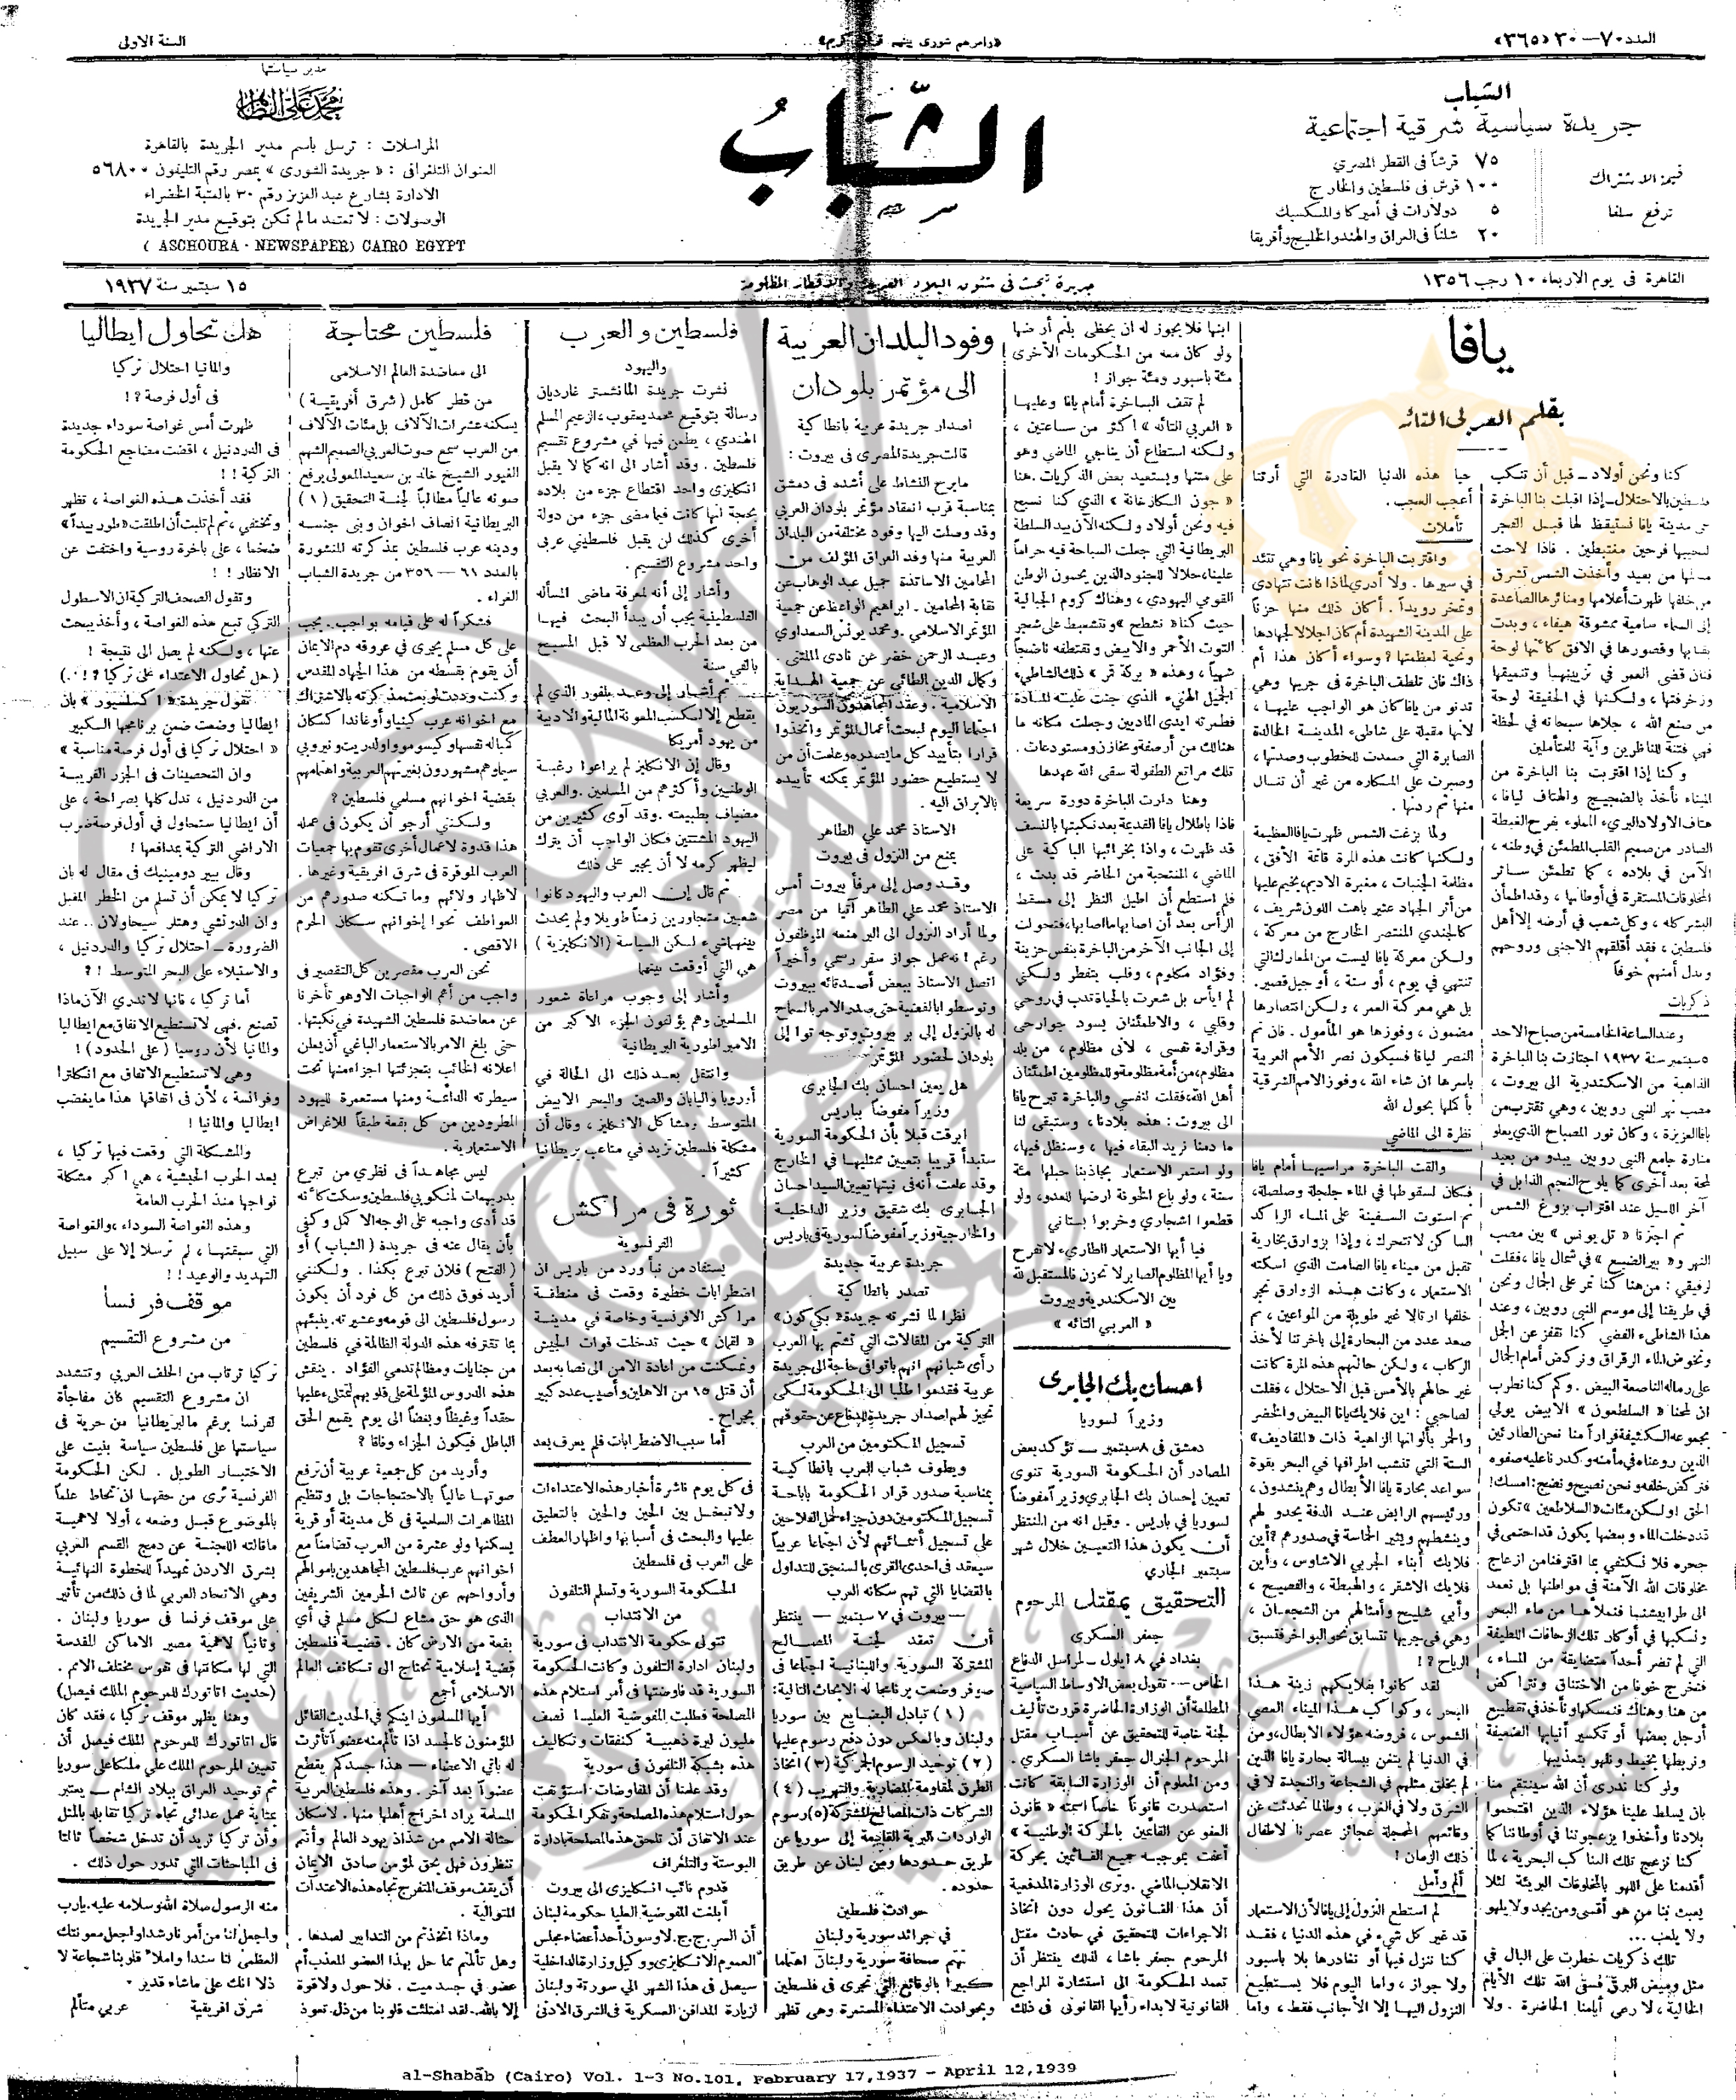 العدد ٧٠ — ٣٠ «٣٦٥»
«وأمرهم شورى بينهم قرآن كريم»
السنة الاولى
الشباب
جريدة سياسية شرقية اجتماعية
قيمة الاشتراك
ترفع سلفا
٧٥ قرشاً في القطر المصري
١٠٠ قرش في فلسطين والخارج
٥ دولارات في أميركا والمكسيك
٢٠ شلناً في العراق والهند والخليج وأفريقا
الشباب
مدير سياستها
محمد علي الطاهر
المراسلات : ترسل باسم مدير الجريدة بالقاهرة
العنوان التلغرافي : « جريدة الشورى » بمصر رقم التليفون ٥٦٨٠٠
الادارة بشارع عبد العزيز رقم ٣٠ بالعتبة الخضراء
الوصولات : لا تعتمد ما لم تكن بتوقيع مدير الجريدة
( ASCHOURA - NEWSPAPER) CAIRO EGYPT
القاهرة في يوم الاربعاء ١٠ رجب ١٣٥٦
جريدة تبحث في شئون البلاد العربية والاقطار المظلومة
١٥ سبتمبر سنة ١٩٣٧
يافا
بقلم العربي التائه
كنا ونحن أولاد — قبل أن تنكب
فلسطين بالاحتلال — إذا اقبلت بنا الباخرة
على مدينة يافا نستيقظ لها قبل الفجر
لنحييها فرحين مغتبطين . فاذا لاحت
لنا من بعيد وأخذت الشمس تشرق
من خلفها ظهرت أعلامها ومنائرها الصاعدة
إلى السماء سامية ممشوقة هيفاء ، وبدت
بقبابها وقصورها في الافق كأنها لوحة
فنان قضى العمر في تزيينها وتنميقها
وزخرفتها ، ولكنها في الحقيقة لوحة
من صنع الله ، جلاها سبحانه في لحظة
فهي فتنة للناظرين وآية للمتأملين
وكنا إذا اقتربت بنا الباخرة من
الميناء نأخذ بالضجيج والهتاف ليافا ،
هتاف الاولاد البريء المملوء بفرح الغبطة
الصادر من صميم القلب المطمئن في وطنه ،
الآمن في بلاده ، كما تطمئن سائر
المخلوقات المستقرة في أوطانها ، وقد اطمأن
البشر كله ، وكل شعب في أرضه إلا أهل
فلسطين ، فقد أقلقهم الاجنبي وروحهم
وبدل أمنهم خوفاً
ذكريات
وعند الساعة الخامسة من صباح الاحد
٥ سبتمبر سنة ١٩٣٧ اجتازت بنا الباخرة
الذاهبة من الاسكندرية الى بيروت ،
مصب نهر النبي روبين ، وهي تقترب من
يافا العزيزة ، وكان نور المصباح الذي يعلو
منارة جامع النبي روبين يبدو من بعيد
لمحة بعد أخرى كما يلوح النجم الذابل في
آخر الليل عند اقتراب بزوغ الشمس
ثم اجتزنا « تل يونس » بين مصب
النهر و« بير الضبع » في شمال يافا ، فقلت
لرفيقي : من هنا كنا نمر على الجمال ونحن
في طريقنا إلى موسم النبي روبين ، وعند
هذا الشاطىء الفضي كنا نقفز عن الجمل
ونخوض الماء الرقراق ونركض أمام الجمال
على رماله الناصعة البيض . وكم كنا نطرب
ان لمحنا « السلطعون » الأبيض يولي
بمجموعه الكثيفة فراراً منا نحن الطارئين
الذين روعناه في مأمنه وكدرنا عليه صفوه
فنركض خلفه ونحن نصيح ونضج : امسك !
الحق ! ولكن مئات «السلاطعين» تكون
قد دخلت الماء وبعضها يكون قد احتمى في
جحره فلا نكتفي بما اقترفنا من ازعاج
مخلوقات الله الآمنة في مواطنها بل نعمد
الى طرابيشنا فنملأها من ماء البحر
ونسكبها في أوكار تلك الزحافات اللطيفة
التي لم تضر أحداً متضايقة من الماء ،
فتخرج خوفا من الاختناق ونتراكض
من هنا وهناك فنمسكها ونأخذ في تقطيع
أرجل بعضها أو تكسير أنيابها الضعيفة
ونربطها بخيط ونلهو بتعذيبها
ولو كنا ندري أن الله سينتقم منا
بان يسلط علينا هؤلاء الذين اقتحموا
بلادنا وأخذوا يزعجوننا في أوطاننا كما
كنا نزعج تلك العناكب البحرية ، لما
أقدمنا على اللهو بالمخلوقات البريئة لئلا
يعبث بنا من هو أقسى ومن يجد ولا يلهو
ولا يلعب ...
تلك ذكريات خطرت على البال في
مثل وميض البرق فسقى الله تلك الأيام
الخالية ، لا رعى أيامنا الحاضرة . ولا
حيا هذه الدنيا الغادرة التي أرتنا
أعجب العجب .
تأملات
واقتربت الباخرة نحو يافا وهي تتئد
في سيرها . ولا أدري لماذا كانت تتهادى
وتمخر رويداً . أكان ذلك منها حزناً
على المدينة الشهيدة أم كان اجلالا لجهادها
وتحية لعظمتها ؟ وسواء أكان هذا أم
ذاك فان تلطف الباخرة في جريها وهي
تدنو من يافا كان هو الواجب عليها ،
لأنها مقبلة على شاطىء المدينة الخالدة
الصابرة التي صمدت للخطوب وصدتها ،
وصبرت على المكاره من غير أن تنال
منها ثم ردتها .
ولما بزغت الشمس ظهرت يافا العظيمة
ولكنها كانت هذه المرة قاتمة الأفق ،
مظلمة الجنبات ، مغبرة الاديم ، يخيم عليها
من أثر الجهاد عثير باهت اللون شريف ،
كالجندي المنتصر الخارج من معركة ،
ولكن معركة يافا ليست من المعارك التي
تنتهي في يوم ، أو سنة ، أو جيل قصير .
بل هي معركة العمر ، ولكن انتصارها
مضمون ، وفوزها هو المأمول . فان تم
النصر ليافا فسيكون نصر الأمم العربية
باسرها ان شاء الله ، وفوز الامم الشرقية
بأكملها بحول الله
نظرة الى الماضي
وألقت الباخرة مراسيها أمام يافا
فكان لسقوطها في الماء جلجلة وصلصلة ،
ثم استوت السفينة على الماء الراكد
الساكن لا تتحرك ، وإذا بزوارق بخارية
تقبل من ميناء يافا الصامت الذي اسكته
الاستعمار ، وكانت هذه الزوارق تجر
خلفها ارتالا غير طويلة من المواعين ، ثم
صعد عدد من البحارة إلى باخرتنا لأخذ
الركاب ، ولكن حالتهم هذه المرة كانت
غير حالهم بالأمس قبل الاحتلال ، فقلت
لصاحبي : اين فلايك يافا البيض والخضر
والحمر بألوانها الزاهية ذات «المقاديف»
الستة التي تنشب اطرافها في البحر بقوة
سواعد بحارة يافا الأبطال وهم ينشدون ،
ورئيسهم الرابض عند الدفة يحدو لهم
وينشطهم ويثير الحماسة في صدورهم ؟ أين
فلايك أبناء الجربي الاشاوس ، وأين
فلايك الاشقر ، والهبطة ، والفصيح ،
وأبي شليح وأمثالهم من الشجعان ،
وهي في جريها تتسابق نحو البواخر فتسبق
الرياح ؟ !
لقد كانوا بفلايكهم زينة هذا
البحر ، وكواكب هذا الميناء العصي
الشموس ، فروضه هؤلاء الابطال ، ومن
في الدنيا لم يتغن ببسالة بحارة يافا الذين
لم يخلق مثلهم في الشجاعة والنجدة لا في
الشرق ولا في الغرب ، وطالما تحدثت عن
وقائعهم المحجلة عجائز عصرنا لاطفال
ذلك الزمان !
ألم وأمل
لم استطع النزول إلى يافا لأن الاستعمار
قد غير كل شيء في هذه الدنيا ، فقد
كنا ننزل فيها أو نغادرها بلا باسبور
ولا جواز ، واما اليوم فلا يستطيع
النزول اليها إلا الأجانب فقط ، واما
ابنها فلا يجوز له ان يحظى بلثم أرضها
ولو كان معه من الحكومات الأخرى
مئة باسبور ومئة جواز !
لم تقف الباخرة أمام يافا وعليها
« العربي التائه » اكثر من ساعتين ،
ولكنه استطاع أن يناجي الماضي وهو
على متنها ويستعيد بعض الذكريات . هنا
« جون السكاز خانة » الذي كنا نسبح
فيه ونحن أولاد ولكنه الآن بيد السلطة
البريطانية التي جعلت السباحة فيه حراماً
علينا ، حلالا للجنود الذين يحمون الوطن
القومي اليهودي ، وهناك كروم الجبالية
حيث كنا « نشطح » ونتشعبط على شجر
التوت الأحمر والأبيض ونقتطفه ناضجاً
شهياً ، وهذه « بركة قر » ذلك الشاطىء
الجميل الهنيء الذي جنت عليه المادة
فطمرته ايدي الماديين وجعلت مكانه ما
هنالك من أرصفة ومخازن ومستودعات .
تلك مراتع الطفولة سقى الله عهدها
وهنا دارت الباخرة دورة سريعة
فاذا باطلال يافا القديمة بعد نكبتها بالنسف
قد ظهرت ، واذا بخرائبها الباكية على
الماضي ، المنتحبة من الحاضر قد بدت ،
فلم استطع أن اطيل النظر إلى مسقط
الرأس بعد أن اصابها ما اصابها ، فتحولت
إلى الجانب الآخر من الباخرة بنفس حزينة
وفؤاد مكلوم ، وقلب يتفطر ولكني
لم أيأس بل شعرت بالحياة تدب في روحي
وقلبي ، والاطمئنان يسود جوارحي
وقرارة نفسي ، لأني مظلوم ، من بلد
مظلوم ، من أمة مظلومة وللمظلومين اطمئنان
أهل الله ، فقلت لنفسي والباخرة تبرح يافا
الى بيروت : هذه بلادنا ، وستبقى لنا
ما دمنا نريد البقاء فيها ، وسنظل فيها ،
ولو استمر الاستعمار يجاذبنا حبلها مئة
سنة ، ولو باع الخونة ارضها للعدو ، ولو
قطعوا اشجاري وخربوا بستاني
فيا أيها الاستعمار الطارىء لا تفرح
ويا أيها المظلوم الصابر لا تحزن فالمستقبل لله
بين الاسكندرية وبيروت
« العربي التائه »
احسان بك الجابري
وزيراً لسوريا
دمشق في ٨ سبتمبر — تؤكد بعض
المصادر أن الحكومة السورية تنوى
تعيين إحسان بك الجابري وزيراً مفوضاً
لسوريا في باريس . وقيل انه من المنتظر
أن يكون هذا التعيين خلال شهر
سبتمبر الجاري
التحقيق بمقتل المرحوم
جعفر العسكري
بغداد في ٨ ايلول — لمراسل الدفاع
الخاص — تقول بعض الاوساط السياسية
المطلعة أن الوزارة الحاضرة قررت تأليف
لجنة خاصة للتحقيق عن أسباب مقتل
المرحوم الجنرال جعفر باشا العسكري .
ومن المعلوم أن الوزارة السابقة كانت
استصدرت قانوناً خاصاً اسمته « قانون
العفو عن القائمين بالحركة الوطنية »
أعفت بموجبه جميع القائمين بحركة
الانقلاب الماضي . وترى الوزارة المدفعية
أن هذا القانون يحول دون اتخاذ
الاجراءات للتحقيق في حادث مقتل
المرحوم جعفر باشا ، لذلك ينتظر أن
تعمد الحكومة الى استشارة المراجع
القانونية لابداء رأيها القانونى في ذلك
وفود البلدان العربية
الى مؤتمر بلودان
اصدار جريدة عربية بانطاكية
قالت جريدة المصري في بيروت :
مابرح النشاط على أشده في دمشق
بمناسبة قرب انعقاد مؤتمر بلودان العربي
وقد وصلت اليها وفود مختلفة من البلدان
العربية منها وفد العراق المؤلف من
المحامين الاساتذة جميل عبد الوهاب عن
نقابة المحامين . ابراهيم الواعظ عن جمعية
المؤتمر الاسلامي . ومحمد يونس السعداوي
وعبد الرحمن خضر عن نادى المثنى .
وكمال الدين الطائي عن جمعية الهداية
الاسلامية . وعقد المجاهدون السوريون
اجتماعا اليوم لبحث أعمال المؤتمر واتخذوا
قرارا بتأييد كل ما يصدره وعلمت أن من
لا يستطيع حضور المؤتمر يمكنه تأييده
بالابراق اليه .
الاستاذ محمد علي الطاهر
يمنع من النزول في بيروت
وقد وصل إلى مرفأ بيروت أمس
الاستاذ محمد علي الطاهر آتيا من مصر
ولما أراد النزول الى البر منعه الموظفون
رغم انه يحمل جواز سفر رسمي وأخيراً
اتصل الاستاذ ببعض أصدقائه ببيروت
وتوسطوا بالقضية حتى صدر الامر بالسماح
له بالنزول إلى بر بيروت وتوجه توا إلى
بلودان لحضور المؤتمر
هل يعين احسان بك الجابري
وزيراً مفوضاً بباريس
ابرقت قبلا بأن الحكومة السورية
ستبدأ قريباً بتعيين ممثليها في الخارج
وقد علمت أنه في نيتها تعيين السيد احسان
الجابري بك شقيق وزير الداخلية
والخارجية وزيراً مفوضاً لسورية في باريس
جريدة عربية جديدة
تصدر بانطاكية
نظرا لما نشرته جريدة «يكي كون»
التركية من المقالات التي تشتم بها العرب
رأى شبانهم انهم باتوا في حاجة الى جريدة
عربية فقدموا طلبا الى الحكومة لكى
تجيز لهم اصدار جريدة للدفاع عن حقوقهم
تسجيل المكتومين من العرب
ويطوف شباب العرب بانطاكية
بمناسبة صدور قرار الحكومة باباحة
تسجيل المكتومين دون جزاء لحمل الفلاحين
على تسجيل أسمائهم لأن اجتماعا عربياً
سيعقد في احدى القرى بالسنجق للتداول
بالقضايا التي تهم سكانه العرب
— بيروت في ٧ سبتمبر — ينتظر
أن تعقد لجنة المصالح
المشتركة السورية واللبنانية اجتماعا في
صوفر وضعت برنامجا له الابحاث التالية :
( ١ ) تبادل البضايع بين سوريا
ولبنان وبالعكس دون دفع رسوم عليها
( ٢ ) توحيد الرسوم الجمركية ( ٣ ) اتخاذ
الطرق لمقاومة المضاربة والتهريب ( ٤ )
الشركات ذات المصالح المشتركة ( ٥ ) رسوم
الواردات البرية القادمة إلى سوريا عن
طريق حدودها ومن لبنان عن طريق
حدوده .
حوادث فلسطين
في جرائد سورية ولبنان
تهتم صحافة سورية ولبنان اهتماما
كبيرا بالوقائع التي تجرى في فلسطين
وبحوادث الاعتداء المستمرة وهي تظهر
فلسطين والعرب
واليهود
نشرت جريدة المانشستر غارديان
رسالة بتوقيع محمد يعقوب ، الزعيم المسلم
الهندي ، يطعن فيها في مشروع تقسيم
فلسطين . وقد أشار الى انه كما لا يقبل
انكليزى واحد اقتطاع جزء من بلاده
بحجة انها كانت فيما مضى جزء من دولة
أخرى كذلك لن يقبل فلسطيني عربى
واحد مشروع التقسيم .
وأشار إلى أنه لمعرفة ماضى المسألة
الفلسطينية يجب أن يبدأ البحث فيها
من بعد الحرب العظمى لا قبل المسيح
بالفي سنة
ثم أشار إلى وعد بلفور الذي لم
يقطع إلا لكسب المعونة المالية والادبية
من يهود أمريكا
وقال إن الانكليز لم يراعوا رغبة
الوطنيين وأكثرهم من المسلمين . والعربي
مضياف بطبيعته . وقد آوى كثيرين من
اليهود المشتتين فكان الواجب أن يترك
ليظهر كرمه لا أن يجبر على ذلك
ثم قال إن العرب واليهود كانوا
شعبين متجاورين زمناً طويلا ولم يحدث
بينهما شيء لكن السياسة ( الانكليزية )
هي التي أوقعت بينهما
وأشار إلى وجوب مراعاة شعور
المسلمين وهم يؤلفون الجزء الاكبر من
الامبراطورية البريطانية
وانتقل بعد ذلك الى الحالة في
أوروبا واليابان والصين والبحر الابيض
المتوسط ومشاكل الانكليز ، وقال أن
مشكلة فلسطين تزيد في متاعب بريطانيا
كثيراً .
ثورة في مراكش
الفرنسوية
يستفاد من نبأ ورد من باريس ان
اضطرابات خطيرة وقعت في منطقة
مراكش الافرنسية وخاصة في مدينة
« لقمان » حيث تدخلت قوات الجيش
وتمكنت من اعادة الامن الى نصابه بعد
أن قتل ١٥ من الاهلين وأصيب عدد كبير
بجراح .
أما سبب الاضطرابات فلم يعرف بعد
في كل يوم ناشرة أخبار هذه الاعتداءات
ولا تبخل بين الحين والحين بالتعليق
عليها والبحث في أسبابها واظهار العطف
على العرب في فلسطين
الحكومة السورية وتسلم التلفون
من الانتداب
تتولى حكومة الانتداب في سورية
ولبنان ادارة التلفون وكانت الحكومة
السورية قد فاوضتها في أمر استلام هذه
المصلحة فطلبت المفوضية العليا نصف
مليون ليرة ذهبية كنفقات وتكاليف
هذه بشبكة التلفون في سورية
وقد علمنا أن المفاوضات استؤنفت
حول استلام هذه المصلحة وتفكر الحكومة
عند الاتفاق أن تلحق هذه المصلحة بادارة
البوستة والتلغراف
قدوم نائب انكليزى الى بيروت
أبلغت المفوضية العليا حكومة لبنان
أن السر ج . ج . لاوسون أحد أعضاء مجلس
العموم الانكليزى ووكيل وزارة الداخلية
سيصل في هذا الشهر الي سورية ولبنان
لزيارة المدافن العسكرية في الشرق الادنى
فلسطين محتاجة
الى معاضدة العالم الاسلامى
من قطر كامل ( شرق أفريقية )
يسكنه عشرات الآلاف بل مئات الآلاف
من العرب سمع صوت العربي الصميم الشهم
الغيور الشيخ خالد بن سعيد المعولى يرفع
صوته عالياً مطالباً لجنة التحقيق ( ! )
البريطانية انصاف اخوان وبنى جنسه
ودينه عرب فلسطين بمذكرته المنشورة
بالعدد ٦١ — ٣٥٦ من جريدة الشباب
الغراء .
فشكراً له على قيامه بواجب . يجب
على كل مسلم يجرى في عروقه دم الايمان
أن يقوم بقسطه من هذا الجهاد المقدس
وكنت وددت لو يعتمد ذكرته بالاشتراك
مع اخوانه عرب كينيا وأوغاندا كسكان
كمباله نفسها وكيسومو والدريت ونيروبي
سيما وهم مشهورون بغيرتهم العربية واهتمامهم
بقضية اخوانهم مسلمي فلسطين ؟
ولكنني أرجو أن يكون في عمله
هذا قدوة لاعمال أخرى تقوم بها جمعيات
العرب الموقرة في شرق افريقية وغيرها .
لاظهار ولائهم وما تكنه صدورهم من
العواطف نحوا إخوانهم سكان الحرم
الاقصى .
نحن العرب مقصرين كل التقصير في
واجب من أهم الواجبات الاوهو تأخرنا
عن معاضدة فلسطين الشهيدة في نكبتها .
حتى بلغ الامر بالاستعمار الباغي أن يعلن
اعلانه الخائب بتجزئتها اجزاء منها تحت
سيطرته الدائمة ومنها مستعمرة لليهود
المطرودين من كل بقعة طبقاً للاغراض
الاستعمارية .
ليس مجاهداً في نظري من تبرع
بدريهمات لمنكوبي فلسطين وسكت كأنه
قد أدى واجبه على الوجه الاكمل وكفى
بأن يقال عنه في جريدة ( الشباب ) أو
( الفتح ) فلان تبرع بكذا . ولكنني
أريد فوق ذلك من كل فرد أن يكون
رسول فلسطين الى قومه وعشيرته . ينبئهم
بما تقترفه هذه الدولة الظالمة في فلسطين
من جنايات ومظالم تدمي الفؤاد . ينقش
هذه الدروس المؤلمة على قلوبهم لتمتلىء عليها
حقداً وغيظاً وبغضاً الى يوم يقمع الحق
الباطل فيكون الجزاء وفاقا ؟
وأريد من كل جمعية عربية أن ترفع
صوتها عالياً بالاحتجاجات بل وتنظيم
المظاهرات السلمية في كل مدينة أو قرية
يسكنها ولو عشرة من العرب تضامناً مع
اخوانهم عرب فلسطين المجاهدين باموالهم
وأرواحهم عن ثالث الحرمين الشريفين
الذى هو حق مشاع لكل مسلم في أي
بقعة من الارض كان . قضية فلسطين
قضية إسلامية تحتاج الى تكاتف العالم
الاسلامى أجمع
أيها المسلمون اينكم في الحديث القائل
المؤمنون كالجسد اذا تألم منه عضوا تأثرت
له باقي الاعضاء — هذا جسدكم يقطع
عضواً بعد آخر . وهذه فلسطين العربية
المسلمة يراد اخراج أهلها منها . لاسكان
حثالة الامم من شذاذ يهود العالم وأنتم
تنظرون فهل يحق لمؤمن صادق الايمان
أن يقف موقف المتفرج تجاه هذه الاعتداآت
المتوالية .
وماذا اتخذتم من التدابير لصدها .
وهل تألمتم مما حل بهذا العضو المعذب أم
عضو في جسد ميت . فلا حول ولا قوة
إلا بالله . لقد امتلئت قلوبنا من ذل تعوذ
هل تحاول ايطاليا
والمانيا احتلال تركيا
في أول فرصة ؟ !
ظهرت أمس غواصة سوداء جديدة
في الدردنيل ، اقضت مضاجع الحكومة
التركية ! !
فقد أخذت هذه الغواصة ، تظهر
وتختفي ، ثم لم تلبث أن اطلقت «طوربيداً»
ضخما ، على باخرة روسية واختفت عن
الانظار ! !
وتقول الصحف التركية ان الاسطول
التركي تبع هذه الغواصة ، وأخذ يبحث
عنها ، ولكنه لم يصل الى نتيجة !
(هل تحاول الاعتداء على تركيا ؟ ! . .)
تقول جريدة « اكسلسيور » بان
ايطاليا وضعت ضمن برنامجها الكبير
« احتلال تركيا في أول فرصة مناسبة »
وان التحصينات في الجزر القريبة
من الدردنيل ، تدل كلها بصراحة ، على
أن ايطاليا ستحاول في أول فرصة ضرب
الاراضي التركية بمدافعها !
وقال بيير دومينيك في مقال له بان
تركيا لا يمكن أن تسلم من الخطر المقبل
وان الدوتشي وهتلر سيحاولان .. عند
الضرورة — احتلال تركيا والدردنيل ،
والاستيلاء على البحر المتوسط ! ؟
أما تركيا ، فانها لا تدري الآن ماذا
تصنع . فهي لا تستطيع الاتفاق مع ايطاليا
والمانيا لأن روسيا ( على الحدود ) !
وهي لا تستطيع الاتفاق مع انكلترا
وفرانسة ، لأن في اتفاقها هذا ما يغضب
ايطاليا والمانيا !
والمشكلة التي وقعت فيها تركيا ،
بعد الحرب الحبشية ، هي اكبر مشكلة
تواجها منذ الحرب العامة
وهذه الغواصة السوداء ، والغواصة
التي سبقتها ، لم ترسلا إلا على سبيل
التهديد والوعيد ! !
موقف فرنسا
من مشروع التقسيم
تركيا ترتاب من الحلف العربي وتتشدد
ان مشروع التقسيم كان مفاجأة
لفرنسا برغم مالبريطانيا من حرية في
سياستها على فلسطين سياسة بنيت على
الاختبار الطويل . لكن الحكومة
الفرنسية ترى من حقها ان تحاط علماً
بالموضوع قبل وضعه ، أولا لاهمية
ماقالته اللجنة عن دمج القسم العربي
بشرق الاردن تمهيداً للخطوة النهائية
وهي الاتحاد العربى لما في ذلك من تأثير
على موقف فرنسا في سوريا ولبنان .
وثانياً لاهمية مصير الاماكن المقدسة
التي لها مكانتها في نفوس مختلف الامم .
(حديث اتاتورك للمرحوم الملك فيصل)
وهنا يظهر موقف تركيا ، فقد كان
قال اتاتورك للمرحوم الملك فيصل أن
تعيين المرحوم الملك علي ملكا على سوريا
ثم توحيد العراق ببلاد الشام — يعتبر
بمثابة عمل عدائي تجاه تركيا تقابله بالمثل
وأن تركيا تريد أن تدخل شخصاً ثالثا
في المباحثات التي تدور حول ذلك .
منه الرسول صلاة الله وسلامه عليه . يارب
واجعل لنا من أمرنا رشدا واجعل معونتك
العظمى لنا سندا واملأ قلوبنا شجاعة لا
ذلا انك على ماشاء قدير .
شرق افريقية عربي متألم
al-Shabāb (Cairo) Vol. 1-3 No.101, February 17,1937 - April 12,1939